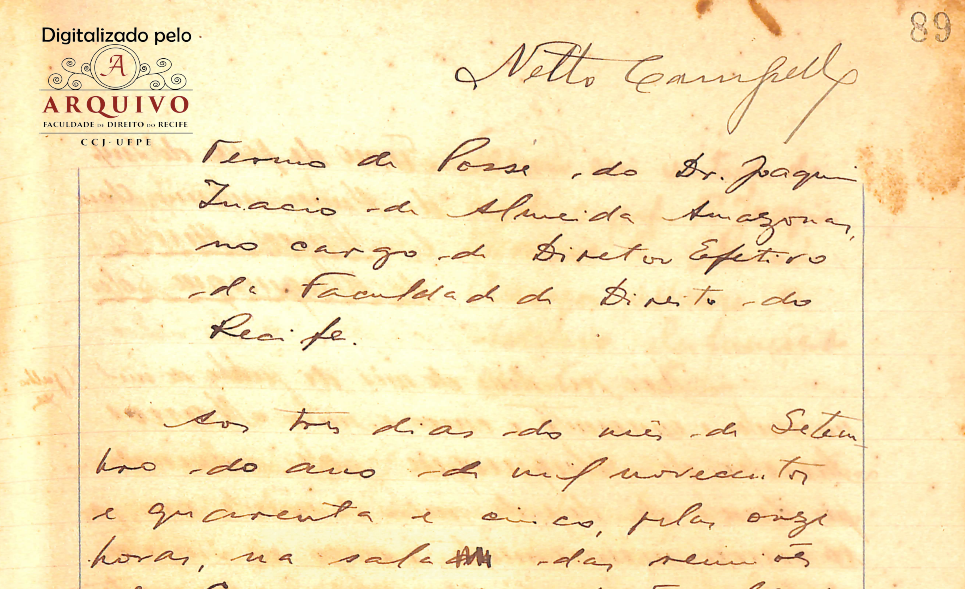 Digitalizado pelo
A
ARQUIVO
FACULDADE DE DIREITO DO RECIFE
CCJ - UFPE
89
Netto Campello
Termo de Posse do Dr. Joaquim
Inacio de Almeida Amazonas,
no cargo de Diretor Efetivo
da Faculdade de Direito do
Recife.
Aos tres dias do mês de Setem
bro do ano de mil novecentos
e quarenta e cinco, pelas onze
horas, na sala das reuniões